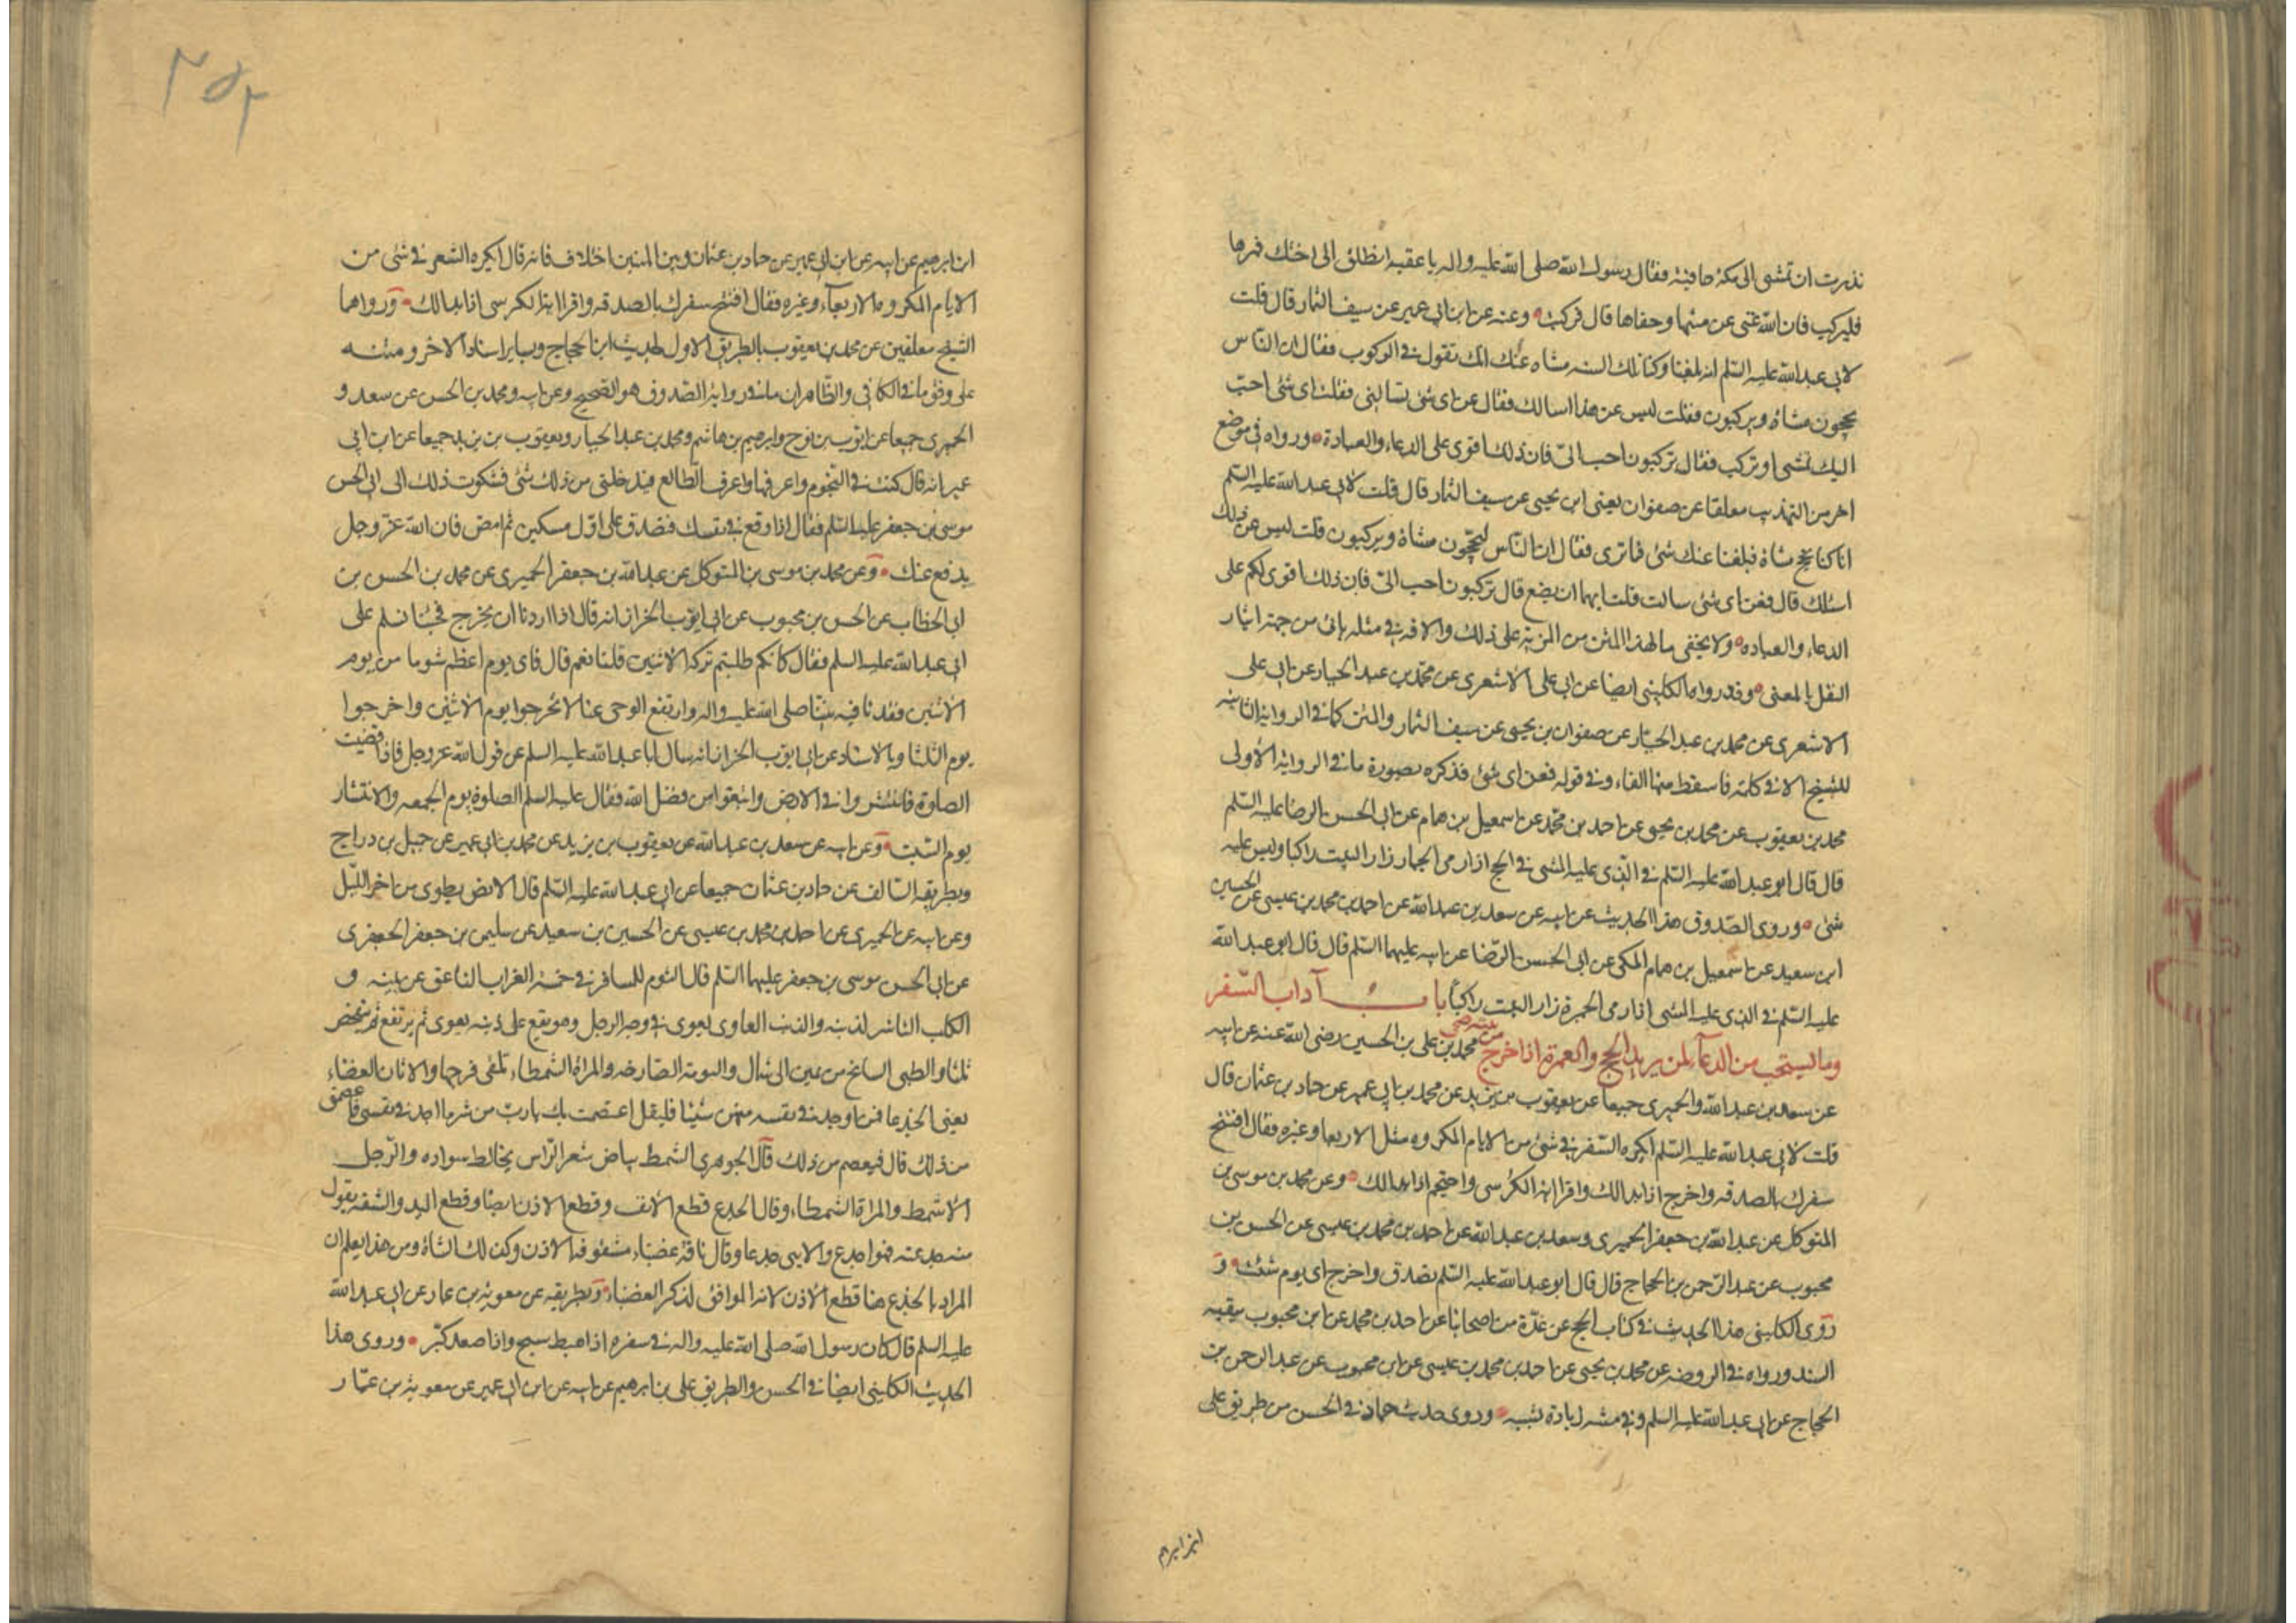 نذرت ان تمشى الى مكة حافية فقال رسول الله صلى الله عليه واله يا عقبه انطلق الى اختك فمرها
فليركب فان الله غنى عن مشيها وحفاها قال فركبت وعنه عن ابن ابى عمير عن سيف التمار قال قلت
لابى عبد الله عليه السّلم انه بلغنا وكنا تلك السنه مشاه عنك انك تقول فى الركوب فقال ان النّاس
يحجون مشاة ويركبون فقلت ليس عن هذا اسالك فقال عن اى شئ تسالنى فقلت اى شئ احبّ
اليك نمشى او نركب فقال تركبون احب الىّ فان ذلك اقوى على الدعاء والعبادة ورواه فى موضع
اخر من التهذيب معلقا عن صفوان يعنى ابن يحيى عن سيف التمار قال قلت لابى عبد الله عليه السّلم
انا كنا نحج مشاة فبلغنا عنك شئ فما ترى فقال ان النّاس ليحجّون مشاة ويركبون قلت ليس عن ذلك
اسئلك قال فعن اى شئ سالت قلت ايهما احب ان نصنع قال تركبون احب الىّ فان ذلك اقوى لكم على
الدعاء والعباده ولا يخفى ما لهذا المتن من المزية على ذلك والافه فى مثله ياتى من جهة ايثار
النقل بالمعنى وقد رواه الكلينى ايضا عن ابى على الاشعرى عن محمّد بن عبد الجبار عن ابى على
الاشعرى عن محمد بن عبد الجبّار عن صفوان بن يحيى عن سيف التمار والمتن كما فى الرواية الثانيه
للشيخ الا فى كلمة فاسقط منها الفاء وفى قوله فعن اى شئ فذكره بصورة ما فى الرواية الاولى
محمد بن يعقوب عن محمد بن يحيى عن احمد بن محمّد عن اسمعيل بن همام عن ابى الحسن الرضا عليه السّلم
قال قال ابو عبد الله عليه السّلم فى الّذى عليه المشى فى الحج اذا رمى الجمار زار البيت راكبا وليس عليه
شئ وروى الصّدوق هذا الحديث عن ابيه عن سعد بن عبد الله عن احمد بن محمد بن عيسى عن الحسين
ابن سعيد عن اسمعيل بن همام المكى عن ابى الحسن الرّضا عن ابيه عليهما السّلم قال قال ابو عبد الله
عليه السّلم فى الذى عليه المشى اذا رمى الجمرة زار البيت راكبًا باب آداب السّفر
وما يستحب من الدعاء لمن يريد الحج والعمرة اذا خرج من بيته صحى محمد بن على بن الحسين رضى الله عنه عن ابيه
عن سعد بن عبد الله والحميرى جميعا عن يعقوب بن يزيد عن محمد بن ابى عمير عن حماد بن عثمان قال
قلت لابى عبد الله عليه السّلم ايكره السّفر فى شئ من الايام المكروه مثل الاربعا وغيره فقال افتتح
سفرك بالصدقه واخرج اذا بدا لك واقرا اية الكرسى واحتجم اذا بدا لك وعن محمد بن موسى بن
المتوكل عن عبد الله بن جعفر الحميرى وسعد بن عبد الله عن احمد بن محمد بن عيسى عن الحسن بن
محبوب عن عبد الرّحمن بن الحجاج قال قال ابو عبد الله عليه السّلم تصدق واخرج اى يوم شئت و
روى الكلينى هذا الحديث فى كتاب الحج عن عدّة من اصحابنا عن احمد بن محمد عن ابن محبوب ببقيه
السند ورواه فى الروضه عن محمد بن يحيى عن احمد بن محمد بن عيسى عن ابن محبوب عن عبد الرحمن بن
الحجاج عن ابى عبد الله عليه السلم وفى متنه زيادة وروى حديث حماد فى الحسن من طريق على
ابن ابرهيم
٢٥٢
ابن ابرهيم عن ابيه عن ابن ابى عمير عن حماد بن عثمان وبين المتنين اختلاف فانه قال ايكره السّفر فى شئ من
الايام المكروه الاربعاء وغيره فقال افتتح سفرك بالصدقه واقرا اية الكرسى اذا بدا لك ورواهما
الشّيخ معلقين عن محمد بن يعقوب بالطريق الاول لحديث ابن الحجاج وبساير اسناد الاخر ومتنه
على وفق ما فى الكافى والظّاهر ان ما فى رواية الصّدوق هو الصّحيح وعن ابيه ومحمد بن الحسن عن سعد و
الحميرى جميعا عن ايّوب بن نوح وابرهيم بن هاشم ومحمد بن عبد الجبار ويعقوب بن يزيد جميعا عن ابن ابى
عمير انه قال كنت انظر فى النّجوم واعرفها واعرف الطّالع فيدخلنى من ذلك شئ فشكوت ذلك الى ابى الحسن
موسى بن جعفر عليه السّلم فقال اذا وقع فى نفسك فتصدق على اوّل مسكين ثم امض فان الله عزّ وجل
يدفع عنك وعن محمد بن موسى بن المتوكل عن عبد الله بن جعفر الحميرى عن محمد بن الحسين بن
ابى الخطاب عن الحسن بن محبوب عن ابى ايّوب الخزاز انه قال اذا اردنا ان نخرج فجئنا نسلم على
ابى عبد الله عليه السلم فقال كانكم طلبتم بركة الاثنين قلنا نعم قال فاى يوم اعظم شوما من يوم
الاثنين فقدنا فيه نبيّنا صلى الله عليه واله وارتفع الوحى عنا لا تخرجوا يوم الاثنين واخرجوا
يوم الثلثا وبالاسناد عن ابى ايوب الخزاز انه سال ابا عبد الله عليه السلم عن قول الله عز وجل فاذا قضيت
الصلوة فانتشروا فى الارض وابتغوا من فضل الله فقال عليه السلم الصلوة يوم الجمعه والانتشار
يوم السّبت وعن ابيه عن سعد بن عبد الله عن يعقوب بن يزيد عن محمد بن ابى عمير عن جميل بن دراج
وبطريقه السّالف عن حماد بن عثمان جميعا عن ابى عبد الله عليه السّلم قال الارض يطوى من اخر اللّيل
وعن ابيه عن الحميرى عن احمد بن محمد بن عيسى عن الحسين بن سعيد عن سليمن بن جعفر الجعفرى
عن ابى الحسن موسى بن جعفر عليهما السّلم قال الشوم للمسافر فى خمسة الغراب الناعق عن يمينه و
الكلب الناشر لذنبه والذئب العاوى يعوى فى وجه الرجل وهو مقع على ذنبه يعوى ثم يرتفع ثم ينخفض
ثلثا والظبى السانح من يمين الى شمال والبومة الصارخه والمراة الشّمطاء تلقى فرجها والاتان العضباء
يعنى الجذعا فمن اوجد فى نفسه منهن شيئا فليقل اعتصمت بك يا ربّ من شرما اجد فى نفسى فاعصمنى
من ذلك قال فيعصم من ذلك قال الجوهرى الشمط بياض شعر الرّاس يخالط سواده والرّجل
الاشمط والمراة الشمطاء وقال الجدع قطع الانف وقطع الاذن ايضا وقطع اليد والشفه يقول
منه جدعته فهو اجدع والانثى جدعا وقال ناقة عضباء مشقوقة الاذن وكذلك الشاة ومن هذا يعلم ان
المراد بالجذع هنا قطع الاذن لانه الموافق لذكر العضباء وبطريقه عن معوية بن عمار عن ابى عبد الله
عليه السلم قال كان رسول الله صلى الله عليه واله فى سفره اذا هبط سبح واذا صعد كبّر وروى هذا
الحديث الكلينى ايضا فى الحسن والطريق على بن ابرهيم عن ابيه عن ابن ابى عمير عن معوية بن عمّار